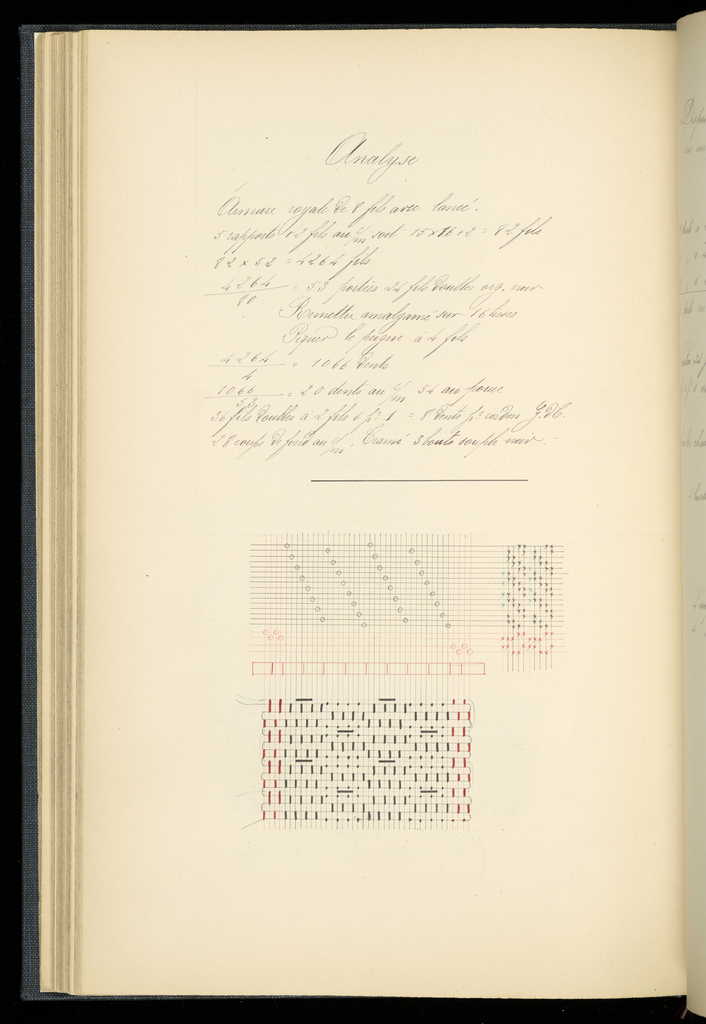 Analyse
Armure royale de 8 fils avec lancé.
5 rapports + 2 fils au c/m soit 15 x 16 + 2 = 82 fils
82 x 52 = 4264 fils
4264
80 = 53 portées 24 fils doubles org. noir
Remettre amalgamé sur 16 lisses
Piquer le peigne à 4 fils
4264
4 = 1066 dents
1066
53 = 20 dents au c/m 54 au pouce
36 fils doubles à 2 fils 6 pr 1 = 8 dents pr cordon G. & D.
28 coups de fond au c/m. Tramé 3 bouts souple noir.